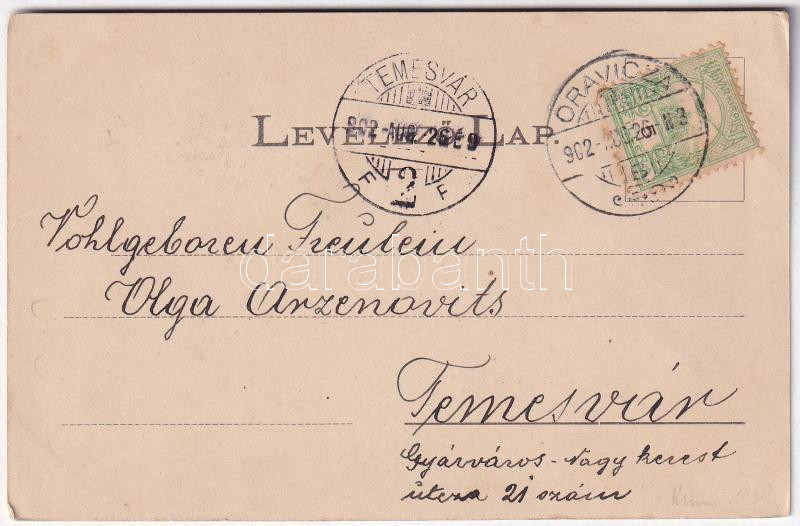 LEVELEZŐ LAP.
TEMESVÁR
902-AUG. 26 É 9
F 2 F
ORAVICZA
902-AUG. 26 N 3
Wohlgeboren Freulein
Olga Arzenovits
darabanth
Temesvár
Gyárváros-Nagy kerest
utcza 21 szám